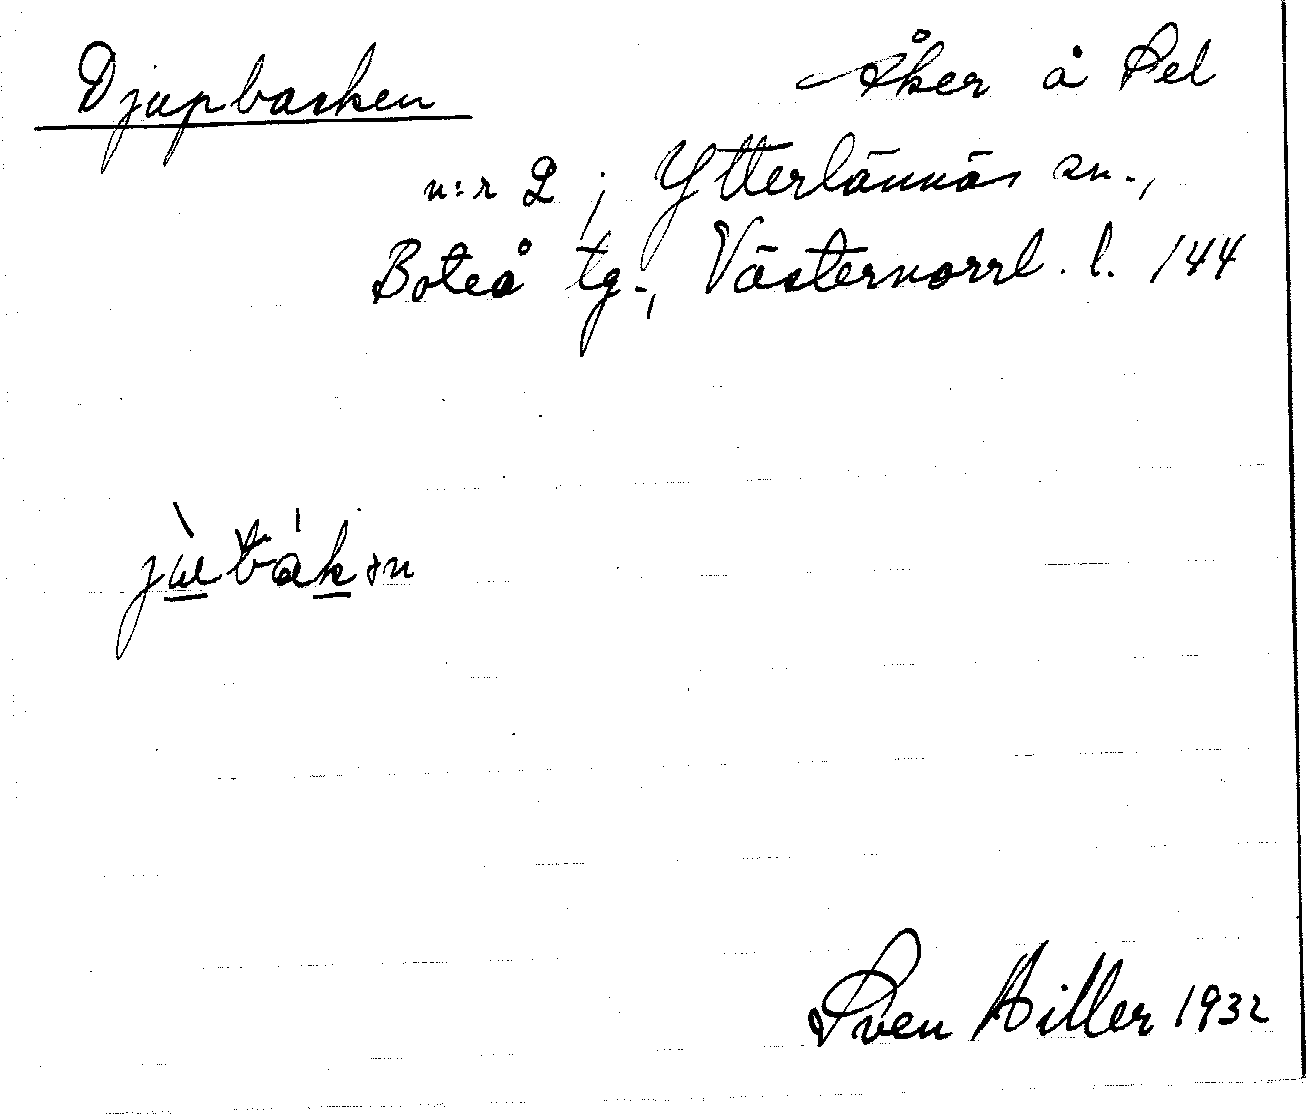 Djupbacken
Åker å Sel
n:r 2, Ytterlännäs sn.,
Boteå tg., Västernorrl. l. 144
Sven Hiller 1932